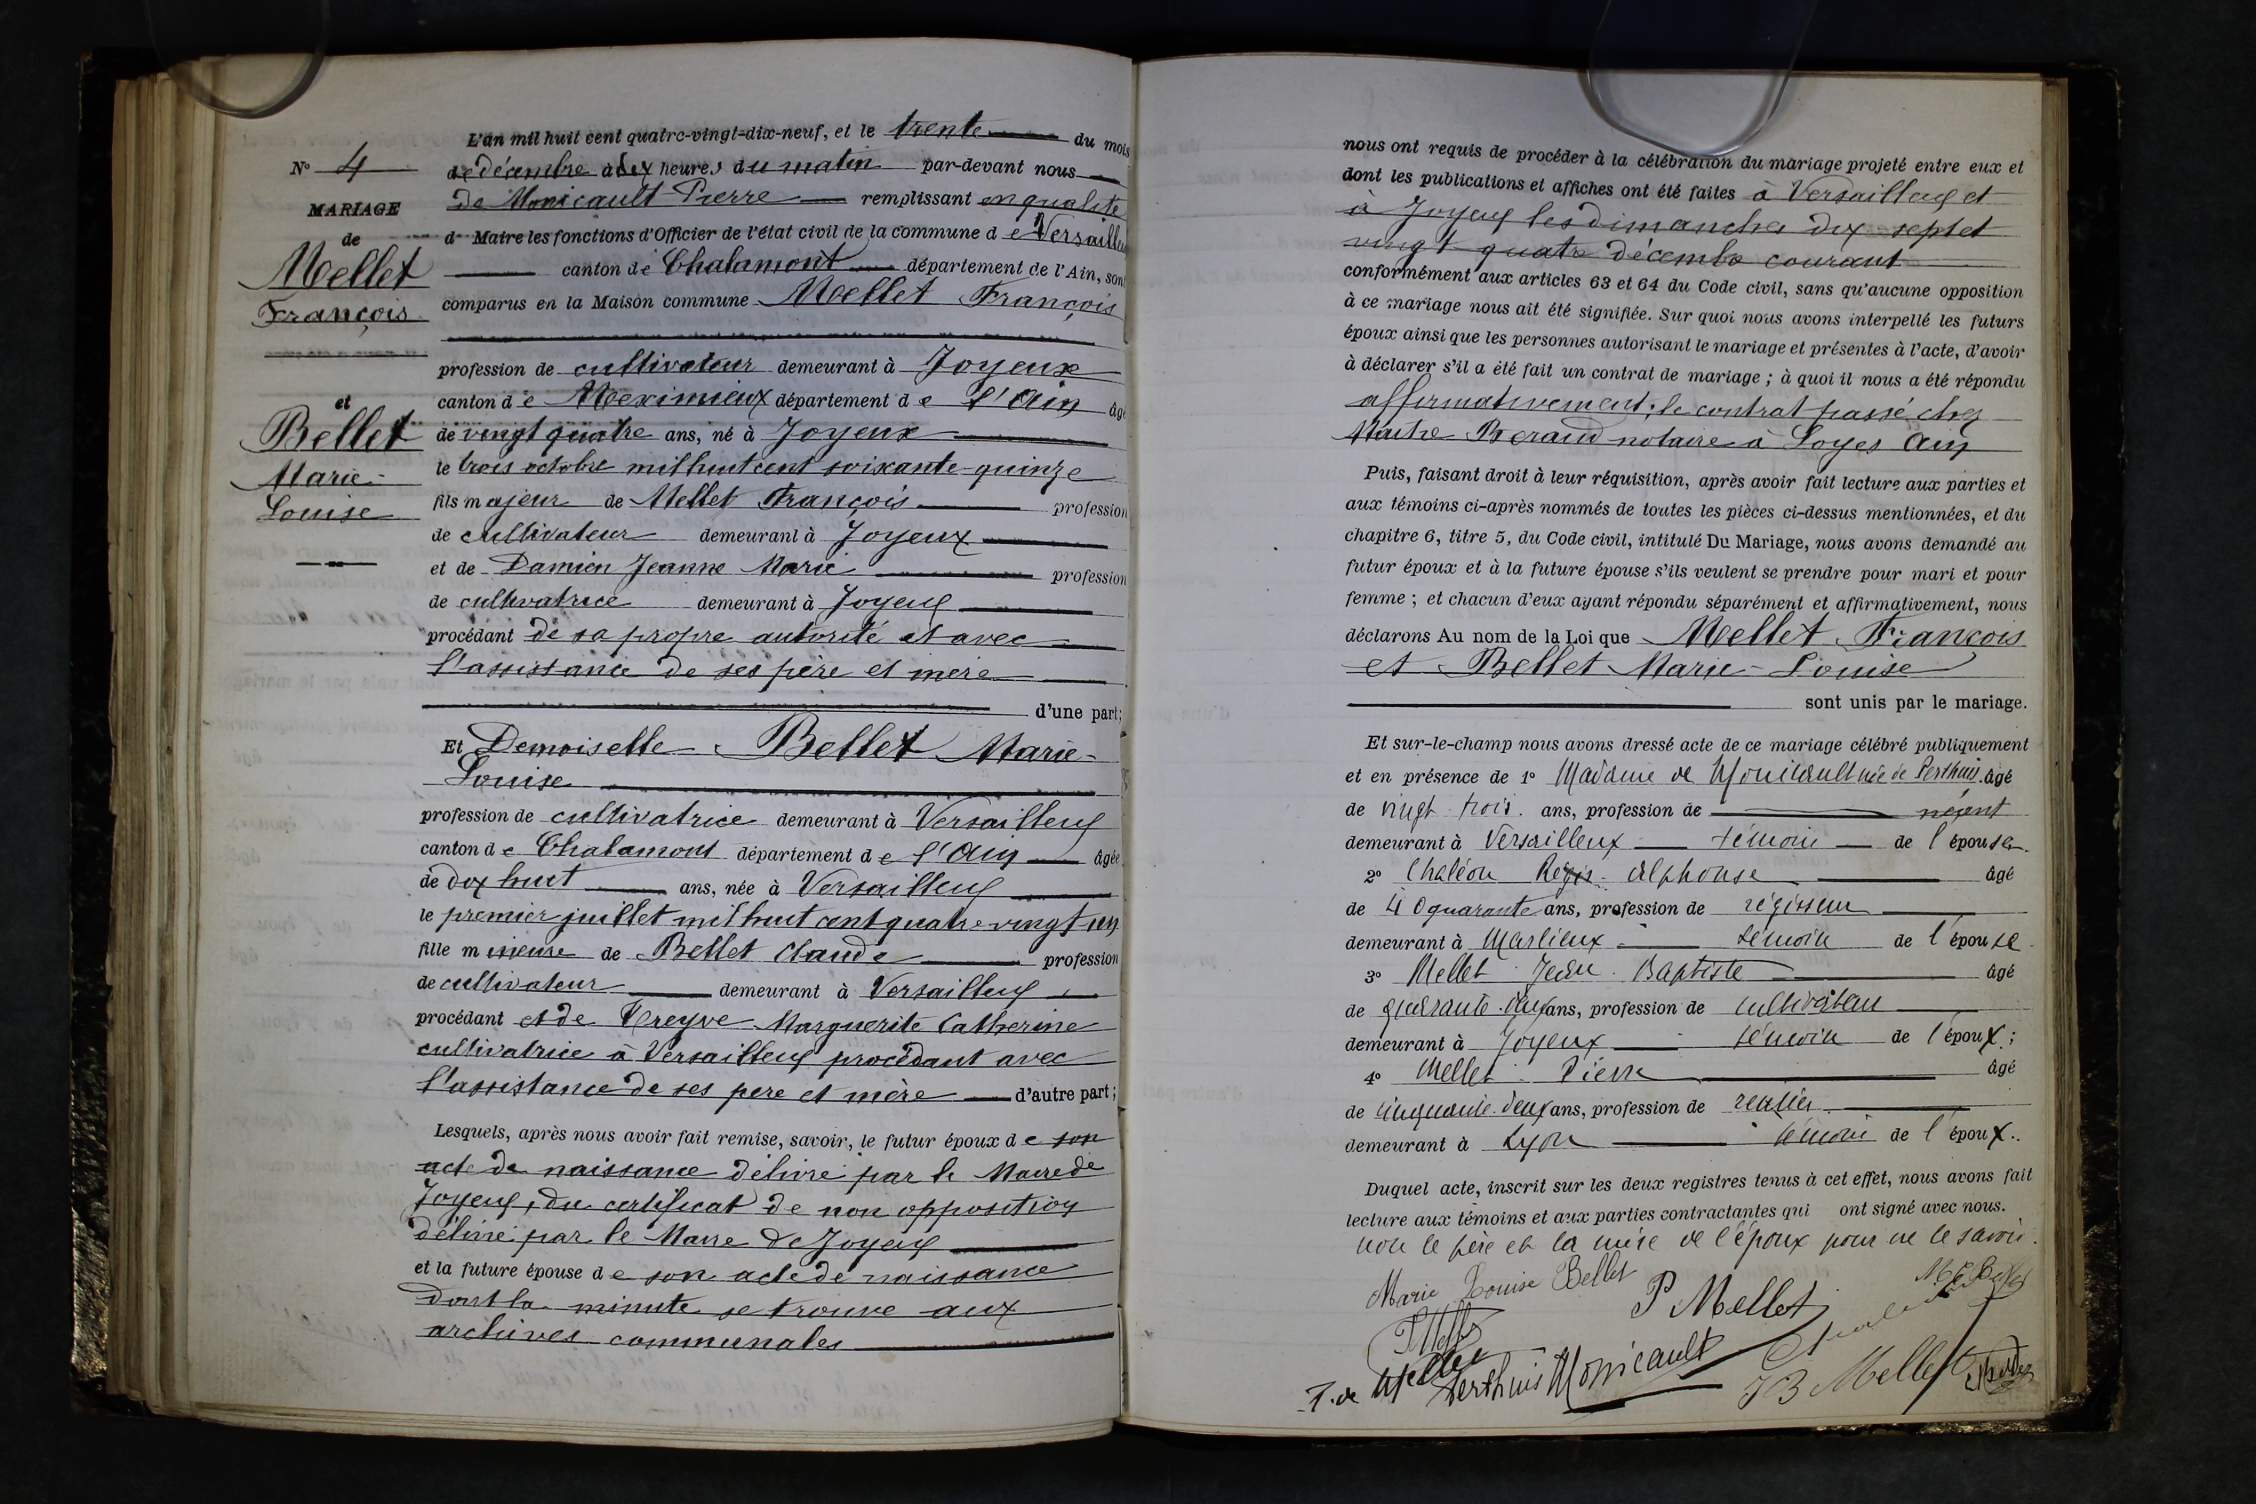 L'an mil huit cent quatre-vingt-dix-neuf, et le trente du mois
de décembre à dix heures du matin par-devant nous
de Monicault Pierre remplissant en qualité
d Maire les fonctions d'Officier de l'état civil de la commune de Versailleux
canton de Chalamont département de l'Ain, sont
comparus en la Maison commune Mellet François
profession de cultivateur demeurant à Joyeux
canton de Meximieux département de l'Ain âgé
de vingt quatre ans, né à Joyeux
le trois octobre mil huit cent soixante-quinze
fils majeur de Mellet François profession
de cultivateur demeurant à Joyeux
et de Damien Jeanne Marie profession
de cultivatrice demeurant à Joyeux
procédant de sa propre autorité et avec
l'assistance de ses père et mère
d'une part;
Et Demoiselle Bellet Marie-
Louise
profession de cultivatrice demeurant à Versailleux
canton de Chalamont département de l'Ain âgée
de dix huit ans, née à Versailleux
le premier juillet mil huit cent quatre vingt un
fille mineure de Bellet Claude profession
de cultivateur demeurant à Versailleux
procédant et de Treyve Marguerite Catherine
cultivatrice à Versailleux procédant avec
l'assistance de ses pere et mère d'autre part;
Lesquels, après nous avoir fait remise, savoir, le futur époux de son
acte de naissance délivré par le Maire de
Joyeux, du certificat de non opposition
délivré par le Maire de Joyeux
et la future épouse de son acte de naissance
dont la minute se trouve aux
archives communales
N° 4
MARIAGE
de
Mellet
François
et
Bellet
Marie-
Louise
nous ont requis de procéder à la célébration du mariage projeté entre eux et
dont les publications et affiches ont été faites à Versailleux et
à Joyeux les dimanches dix sept et
vingt quatre décembre courant
conformément aux articles 63 et 64 du Code civil, sans qu'aucune opposition
à ce mariage nous ait été signifiée. Sur quoi nous avons interpellé les futurs
époux ainsi que les personnes autorisant le mariage et présentes à l'acte, d'avoir
à déclarer s'il a été fait un contrat de mariage ; à quoi il nous a été répondu
affirmativement; le contrat passé chez
Maitre Beraud notaire à Loyes Ain
Puis, faisant droit à leur réquisition, après avoir fait lecture aux parties et
aux témoins ci-après nommés de toutes les pièces ci-dessus mentionnées, et du
chapitre 6, titre 5, du Code civil, intitulé Du Mariage, nous avons demandé au
futur époux et à la future épouse s'ils veulent se prendre pour mari et pour
femme ; et chacun d'eux ayant répondu séparément et affirmativement, nous
déclarons Au nom de la Loi que Mellet François
et Bellet Marie-Louise
sont unis par le mariage.
Et sur-le-champ nous avons dressé acte de ce mariage célébré publiquement
et en présence de 1° Madame de Monicault née de Perthuis âgé
de vingt trois ans, profession de néant
demeurant à Versailleux témoin de l'épouse
2° Chaléon Régis Alphonse âgé
de 40 quarante ans, profession de régisseur
demeurant à Marlieux témoin de l'épouse
3° Mellet Jean Baptiste âgé
de quarante ans, profession de cultivateur
demeurant à Joyeux témoin de l'époux ;
4° Mellet Pierre âgé
de cinquante deux ans, profession de rentier
demeurant à Lyon témoin de l'époux.
Duquel acte, inscrit sur les deux registres tenus à cet effet, nous avons fait
lecture aux témoins et aux parties contractantes qui ont signé avec nous.
non le père et la mère de l'époux pour ne le savoir.
Marie Louise Bellet
P Mellet
Perthuis Monicault
JB Mellet